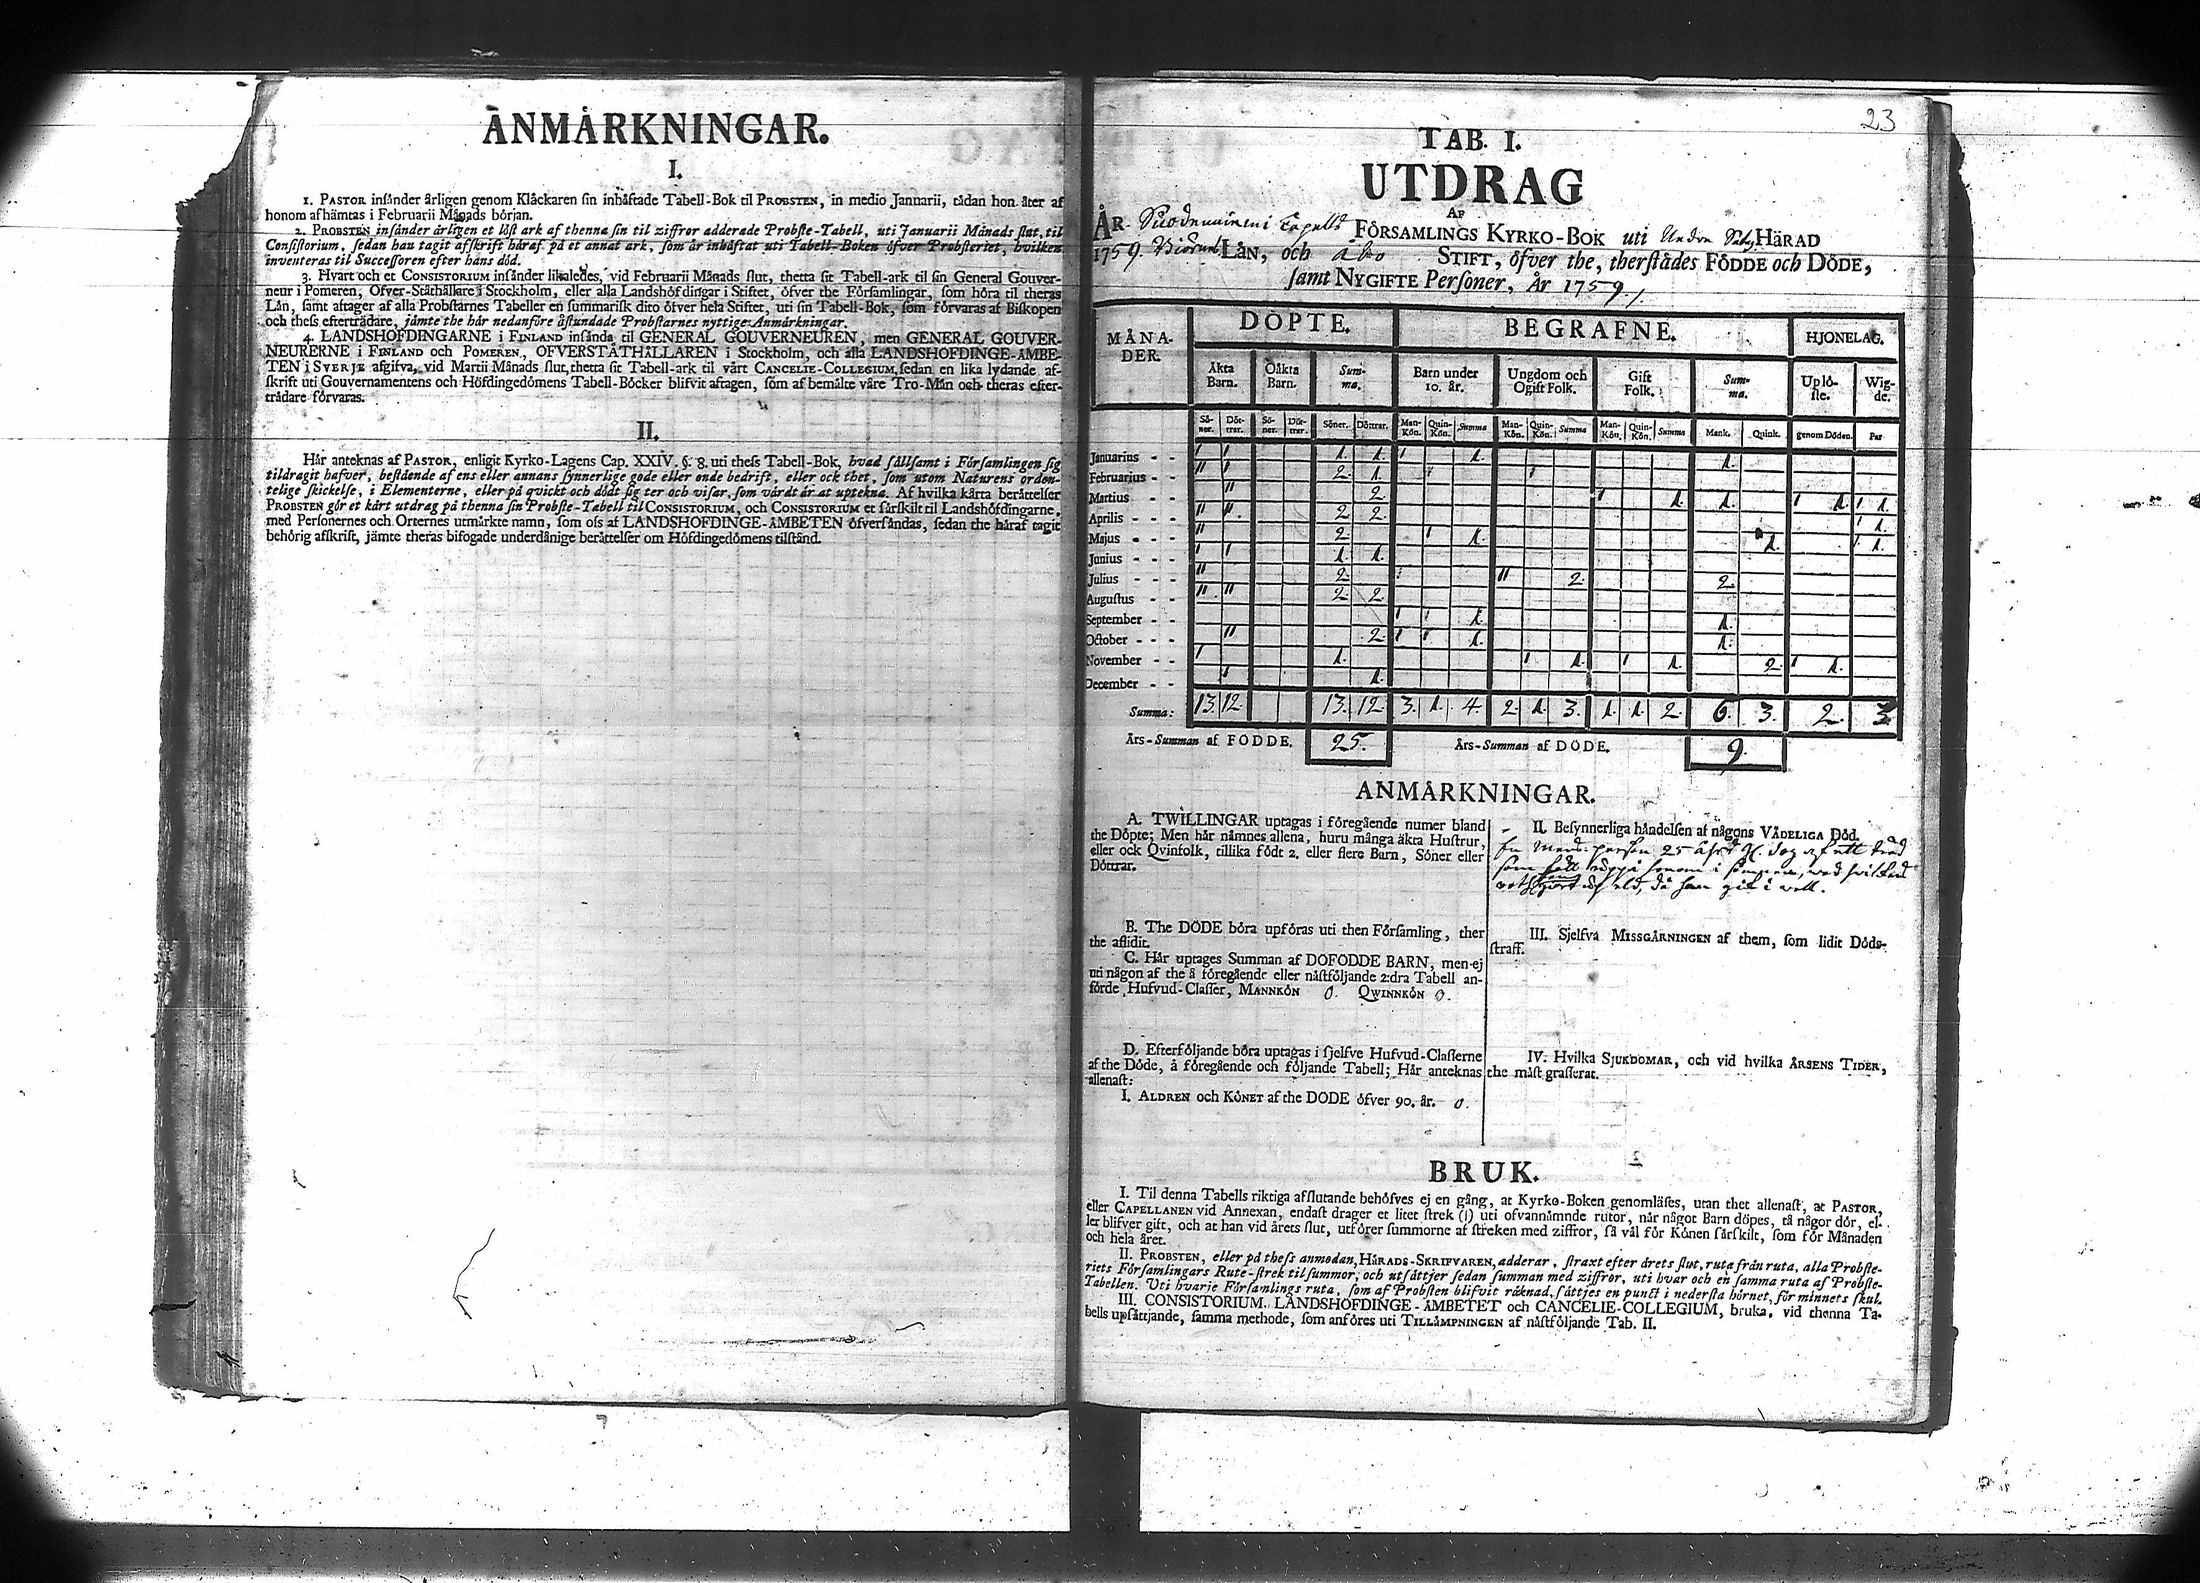 ANMÄRKNINGAR.
I.
1. PASTOR insänder årligen genom Klåckaren sin inhäftade Tabell-Bok til PROBSTEN, in medio Januarii, tädan hon åter af
honom afhämtas i Februarii Månads början.
2. PROBSTEN insänder årligen et löst ark af thenna sin til ziffror adderade Probste-Tabell, uti Januarii Månads slut, til
Consistorium, sedan han tagit afskrift häraf på et annat ark, som är inhäftat uti Tabell-Boken öfver Probsteriet, hvilken
inventeras til Successoren efter hans död.
3. Hvart och et CONSISTORIUM insänder likaledes, vid Februarii Månads slut, thetta sit Tabell-ark til sin General Gouver-
neur i Pomeren, Ofver-Ståthållare i Stockholm, eller alla Landshöfdingar i Stiftet, öfver the Församlingar, som höra til theras
Län, samt aftager af alla Probstarnes Tabeller en summarisk dito öfver hela Stiftet, uti sin Tabell-Bok, som förvaras af Biskopen
och thess efterträdare, jämte the här nedanföre åstundade Probstarnes nyttige Anmärkningar.
4. LANDSHÖFDINGARNE i FINLAND insända til GENERAL GOUVERNEUREN, men GENERAL GOUVER-
NEURERNE i FINLAND och POMEREN, OFVERSTÅTHÅLLAREN i Stockholm, och alla LANDSHÖFDINGE-ÄMBE-
TEN i SVERJE afgifva, vid Martii Månads slut, thetta sit Tabell-ark til vårt CANCELIE-COLLEGIUM, sedan en lika lydande af-
skrift uti Gouvernamentens och Höfdingedömens Tabell-Böcker blifvit aftagen, som af bemälte våre Tro-Män och theras efter-
trädare förvaras.
II.
Här anteknas af PASTOR, enligit Kyrko-Lagens Cap. XXIV. §. 8. uti thess Tabell-Bok, hvad sällsamt i Församlingen sig
tildragit hafver, bestående af ens eller annans synnerlige gode eller onde bedrift, eller ock thet, som utom Naturens orden-
telige skickelse, i Elementerne, eller på quickt och dödt sig ter och visar, som värdt är at uptekna. Af hvilka kårta berättelser
PROBSTEN gör et kårt utdrag på thenna sin Probste-Tabell til CONSISTORIUM, och CONSISTORIUM et särskilt til Landshöfdingarne,
med Personernes och Orternes utmärkte namn, som oss af LANDSHÖFDINGE-ÄMBETEN öfversändas, sedan the häraf tagit
behörig afskrift, jämte theras bifogade underdånige berättelser om Höfdingedömens tilstånd.
23
TAB. I.
UTDRAG
AF
ÅR Suodenniemi Capells FÖRSAMLINGS KYRKO-BOK uti HÄRAD
1759. LÄN, och Åbo STIFT, öfver the, therstädes FÖDDE och DÖDE,
samt NYGIFTE Personer, År 1759.
MÅNA-
DER. DÖPTE. BEGRAFNE. HJONELAG.
Äkta Barn. Oäkta Barn. Sum-ma. Barn under 10. år. Ungdom och Ogift Folk. Gift Folk. Sum-ma. Uplö-ste. Wig-de.
Sö-ner. Döt-trar. Sö-ner. Döt-trar. Söner. Döttrar. Man-Kön. Quin-Kön. Summa Man-Kön. Quin-Kön. Summa Man-Kön. Quin-Kön. Summa Mank. Quink. genom Döden. Par
Januarius - - ı ı 1. 1. ı 1. 1.
Februarius - - ıı ı 2. 1.
Martius - - ıı 2. ı 1. 1. ı 1. ı 1.
Aprilis - - - ıı ıı. 2. 2. ı 1.
Majus - - - ıı 2. ı 1. 1. ı 1.
Junius - - - ı ı 1. 1.
Julius - - - ıı 2. ıı 2. 2.
Augustus - - ıı. ıı 2. 2.
September - - ı ı 1. 1.
October - - - ıı 2. ı ı 1. 1.
November - - ı 1. ı 1. ı 1. 2. ı 1.
December - - ı 1.
Summa: 13. 12 13. 12 3. 1. 4. 2. 1. 3. 1. 1. 2. 6. 3. 2. 3.
Års-Summan af FÖDDE. 25. Års-Summan af DÖDE. 9.
ANMÄRKNINGAR.
A. TWILLINGAR uptagas i föregående numer bland
the Döpte; Men här nämnes allena, huru många äkta Hustrur,
eller ock Qvinfolk, tillika födt 2. eller flere Barn, Söner eller
Döttrar.
B. The DÖDE böra upföras uti then Församling, ther
the aflidit.
C. Här uptages Summan af DÖFÖDDE BARN, men ej
uti någon af the å föregående eller nästföljande 2:dra Tabell an-
förde Hufvud-Classer, MANNKÖN 0. QWINNKÖN 0.
D. Efterföljande böra uptagas i sjelfve Hufvud-Classerne
af the Döde, å föregående och följande Tabell; Här anteknas
allenast:
I. ÅLDREN och KÖNET af the DÖDE öfver 90. år. 0.
II. Besynnerliga händelsen af någons VÅDELIGA Död.
En Mans person 25 åhr dog af ett träd
som föll uppå honom i
eld, då han gik i
III. Sjelfva MISSGÄRNINGEN af them, som lidit Döds-
straff.
IV. Hvilka SJUKDOMAR, och vid hvilka ÅRSENS TIDER,
the mäst grasserat.
BRUK.
I. Til denna Tabells riktiga afslutande behöfves ej en gång, at Kyrko-Boken genomläses, utan thet allenast, at PASTOR,
eller CAPELLANEN vid Annexan, endast drager et litet strek (|) uti ofvannämnde rutor, når något Barn döpes, tå någor dör, el-
ler blifver gift, och at han vid årets slut, utförer summorne af streken med ziffror, så väl för Könen särskilt, som för Månaden
och hela året.
II. PROBSTEN, eller på thess anmodan, HÄRADS-SKRIFVAREN, adderar, straxt efter årets slut, ruta från ruta, alla Probste-
riets Församlingars Rute-strek til summor, och utsättjer sedan summan med ziffror, uti hvar och en samma ruta af Probste-
Tabellen. Uti hvarje Församlings ruta, som af Probsten blifvit räknad, sättjes en punct i nedersta hörnet, för minnets skul.
III. CONSISTORIUM, LANDSHÖFDINGE-ÄMBETET och CANCELIE-COLLEGIUM, bruka, vid thenna Ta-
bells upsättjande, samma methode, som anföres uti TILLÄMPNINGEN af nästföljande Tab. II.